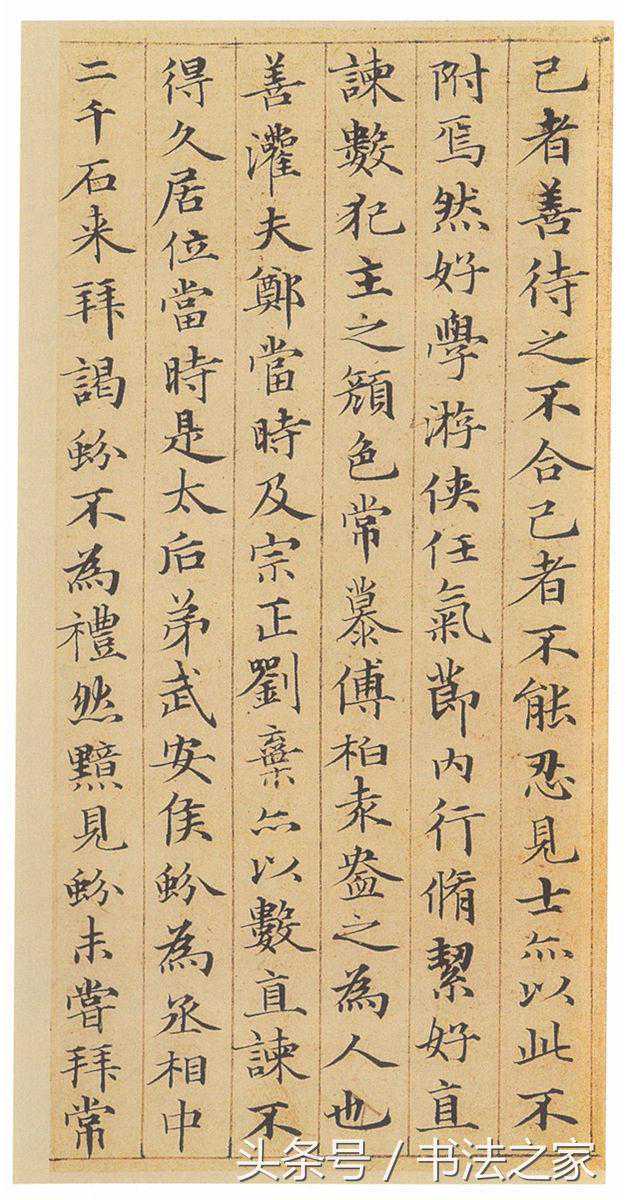 己者善待之不合己者不能忍見士亦以此不
附焉然好學游俠任氣節内行脩絜好直
諫數犯主之顔色常慕傅柏袁盎之為人也
善灌夫鄭當時及宗正劉棄亦以數直諫不
得久居位當時是太后弟武安侯蚡為丞相中
二千石来拜謁蚡不為禮然黯見蚡未嘗拜常
头条号 / 书法之家